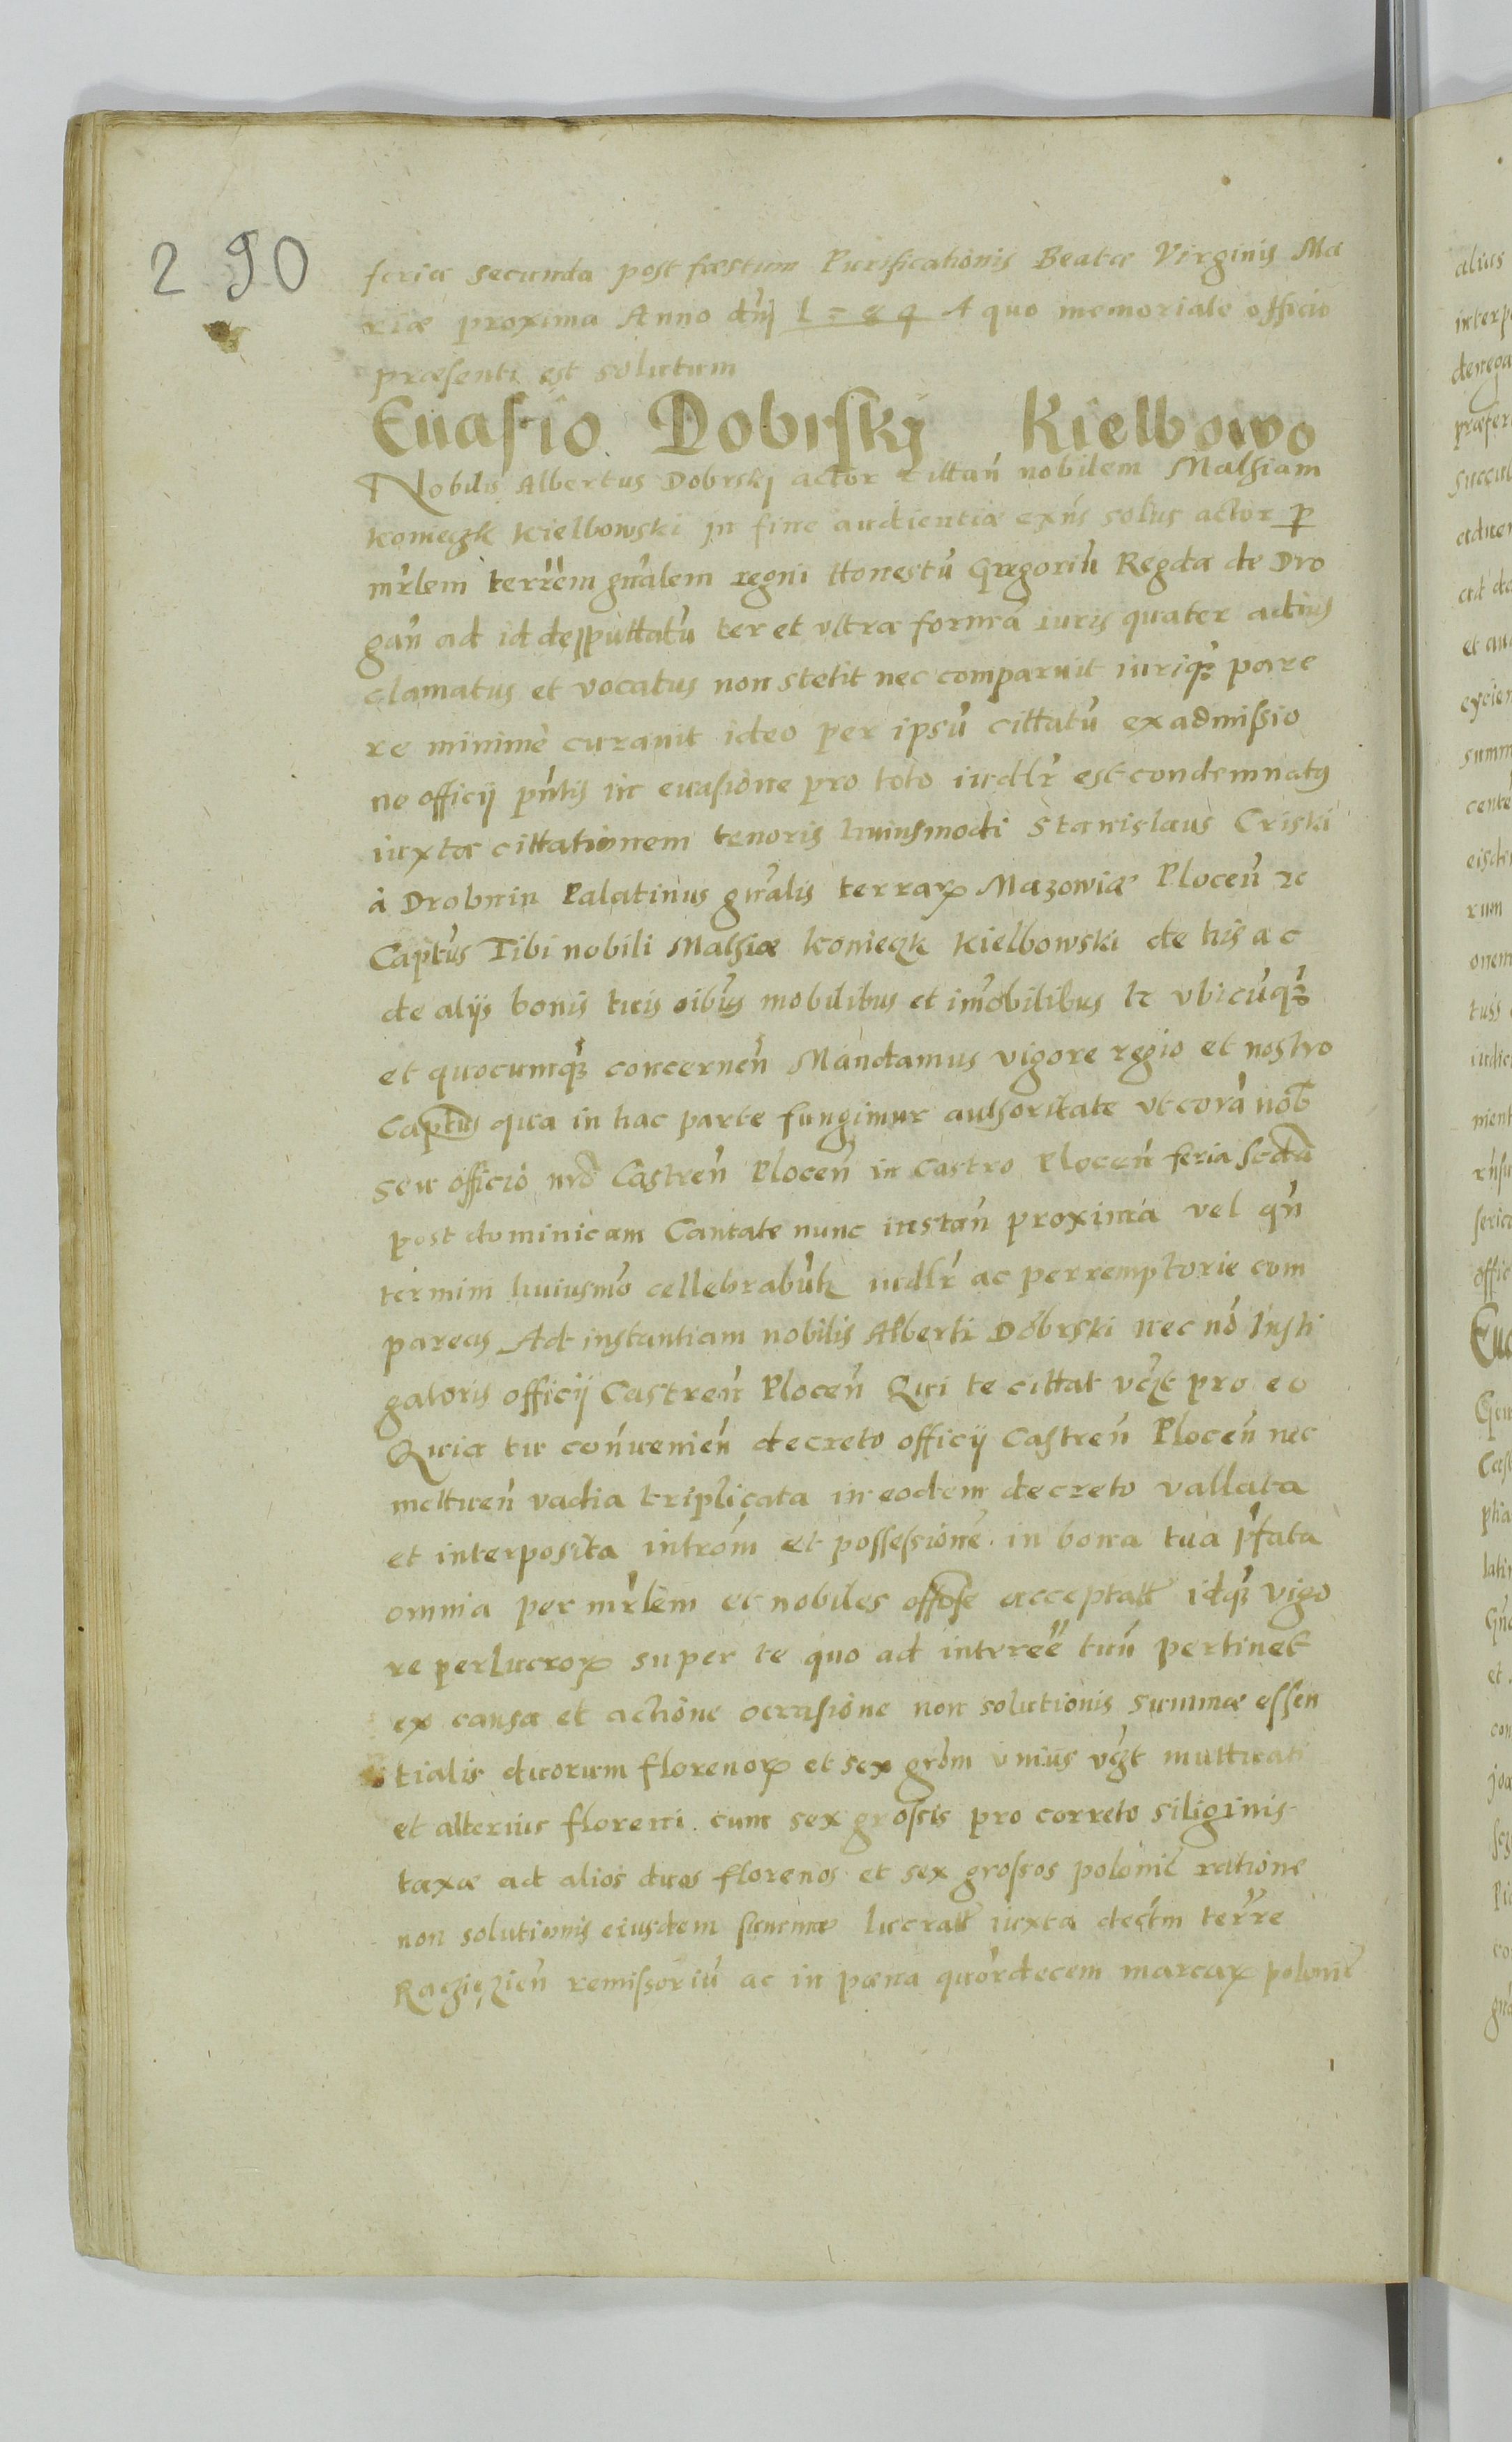 290
feria secunda post fæstum Purificationis Beatæ Virginis Ma
riæ proxima Anno dńj A quo memoriale officio
præsenti est solutum
Euasio Dobrskj Kielbowo
Nobilis Albertus Dobrskj actor cittań nobilem Mathiam
konieczk kielbowski in fine audientiæ exńs solus actor p
mrlem terrem gnralem regni Honestū Gregoriū Regda de Dro
gań ad id desputtatū ter et vltra formā iuris quater actius
clamatus et vocatus non stetit nec comparuit iuriqȝ pare
re minime curauit ideo per ipsū cittatū ex admissio
ne officij pńtis in euasione pro toto iudlr est condemnatꝯ
iuxta cittationem tenoris huiusmodi Stanislaus Criski
à Drobnin Palatinus gnralis terraꝝ Mazowiæ Ploceń ꝛc
Capteus Tibi nobili Mathiæ konieczk kielbowski de his ac
de alijs bonis tuis oibus mobilibus et imobilibus ꝛc vbicūqȝ
et quocumqȝ conccerneń Mandamus vigore regio et nostro
Captus qua in hac parte fungimur authoritate vt corā nob
seu officio nro Castreń Ploceń in Castro Ploceń feria Scda
post dominicam Cantate nunc instań proxima vel qń
termini huiusmo cellebrabūtr iudlr ac perremptorie com
pareas Ad instantiam nobilis Alberti Dobrski nec nō Insti
gatoris officij Castreń Ploceń Qui te cittat vczt pro eo
Quia tu conuenień decreto officij Castreń Ploceń nec
mettueń vadia triplicata in eodem decreto vallata
et interposita introm et possessione in bona tua pfata
omnia per mrlem et nobiles offose acceptatt idqȝ vigo
re perlucroꝝ super te quo ad interee tuū pertinet
ex causa et actione occasione non solutionis summæ essen
tialis duorum florenoꝝ et sex grom vnius vczt muttuati
et alterius floreni cum sex grossis pro correto siliginis
taxæ ad alios duos florenos et sex grossos polonic rattione
non solutionis eiusdem summæ lucratt iuxta dectm terre
Raczięzień remissoriū ac in pæna quordecem marcaꝝ polonic